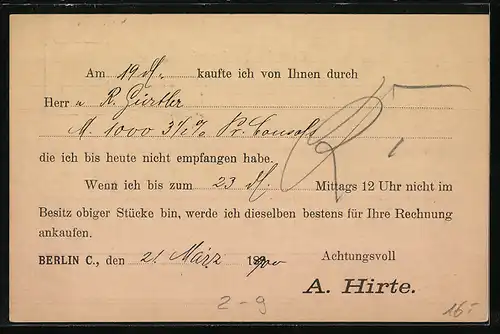 Am 19 d. M. kaufte ich von Ihnen durch
Herr R. Gürtler
M. 1000 3½% Pr. Consols
die ich bis heute nicht empfangen habe.
Wenn ich bis zum 23 d. M. Mittags 12 Uhr nicht im
Besitz obiger Stücke bin, werde ich dieselben bestens für Ihre Rechnung
ankaufen.
BERLIN C., den 21. März 1900
Achtungsvoll
A. Hirte.
2-9
16.-